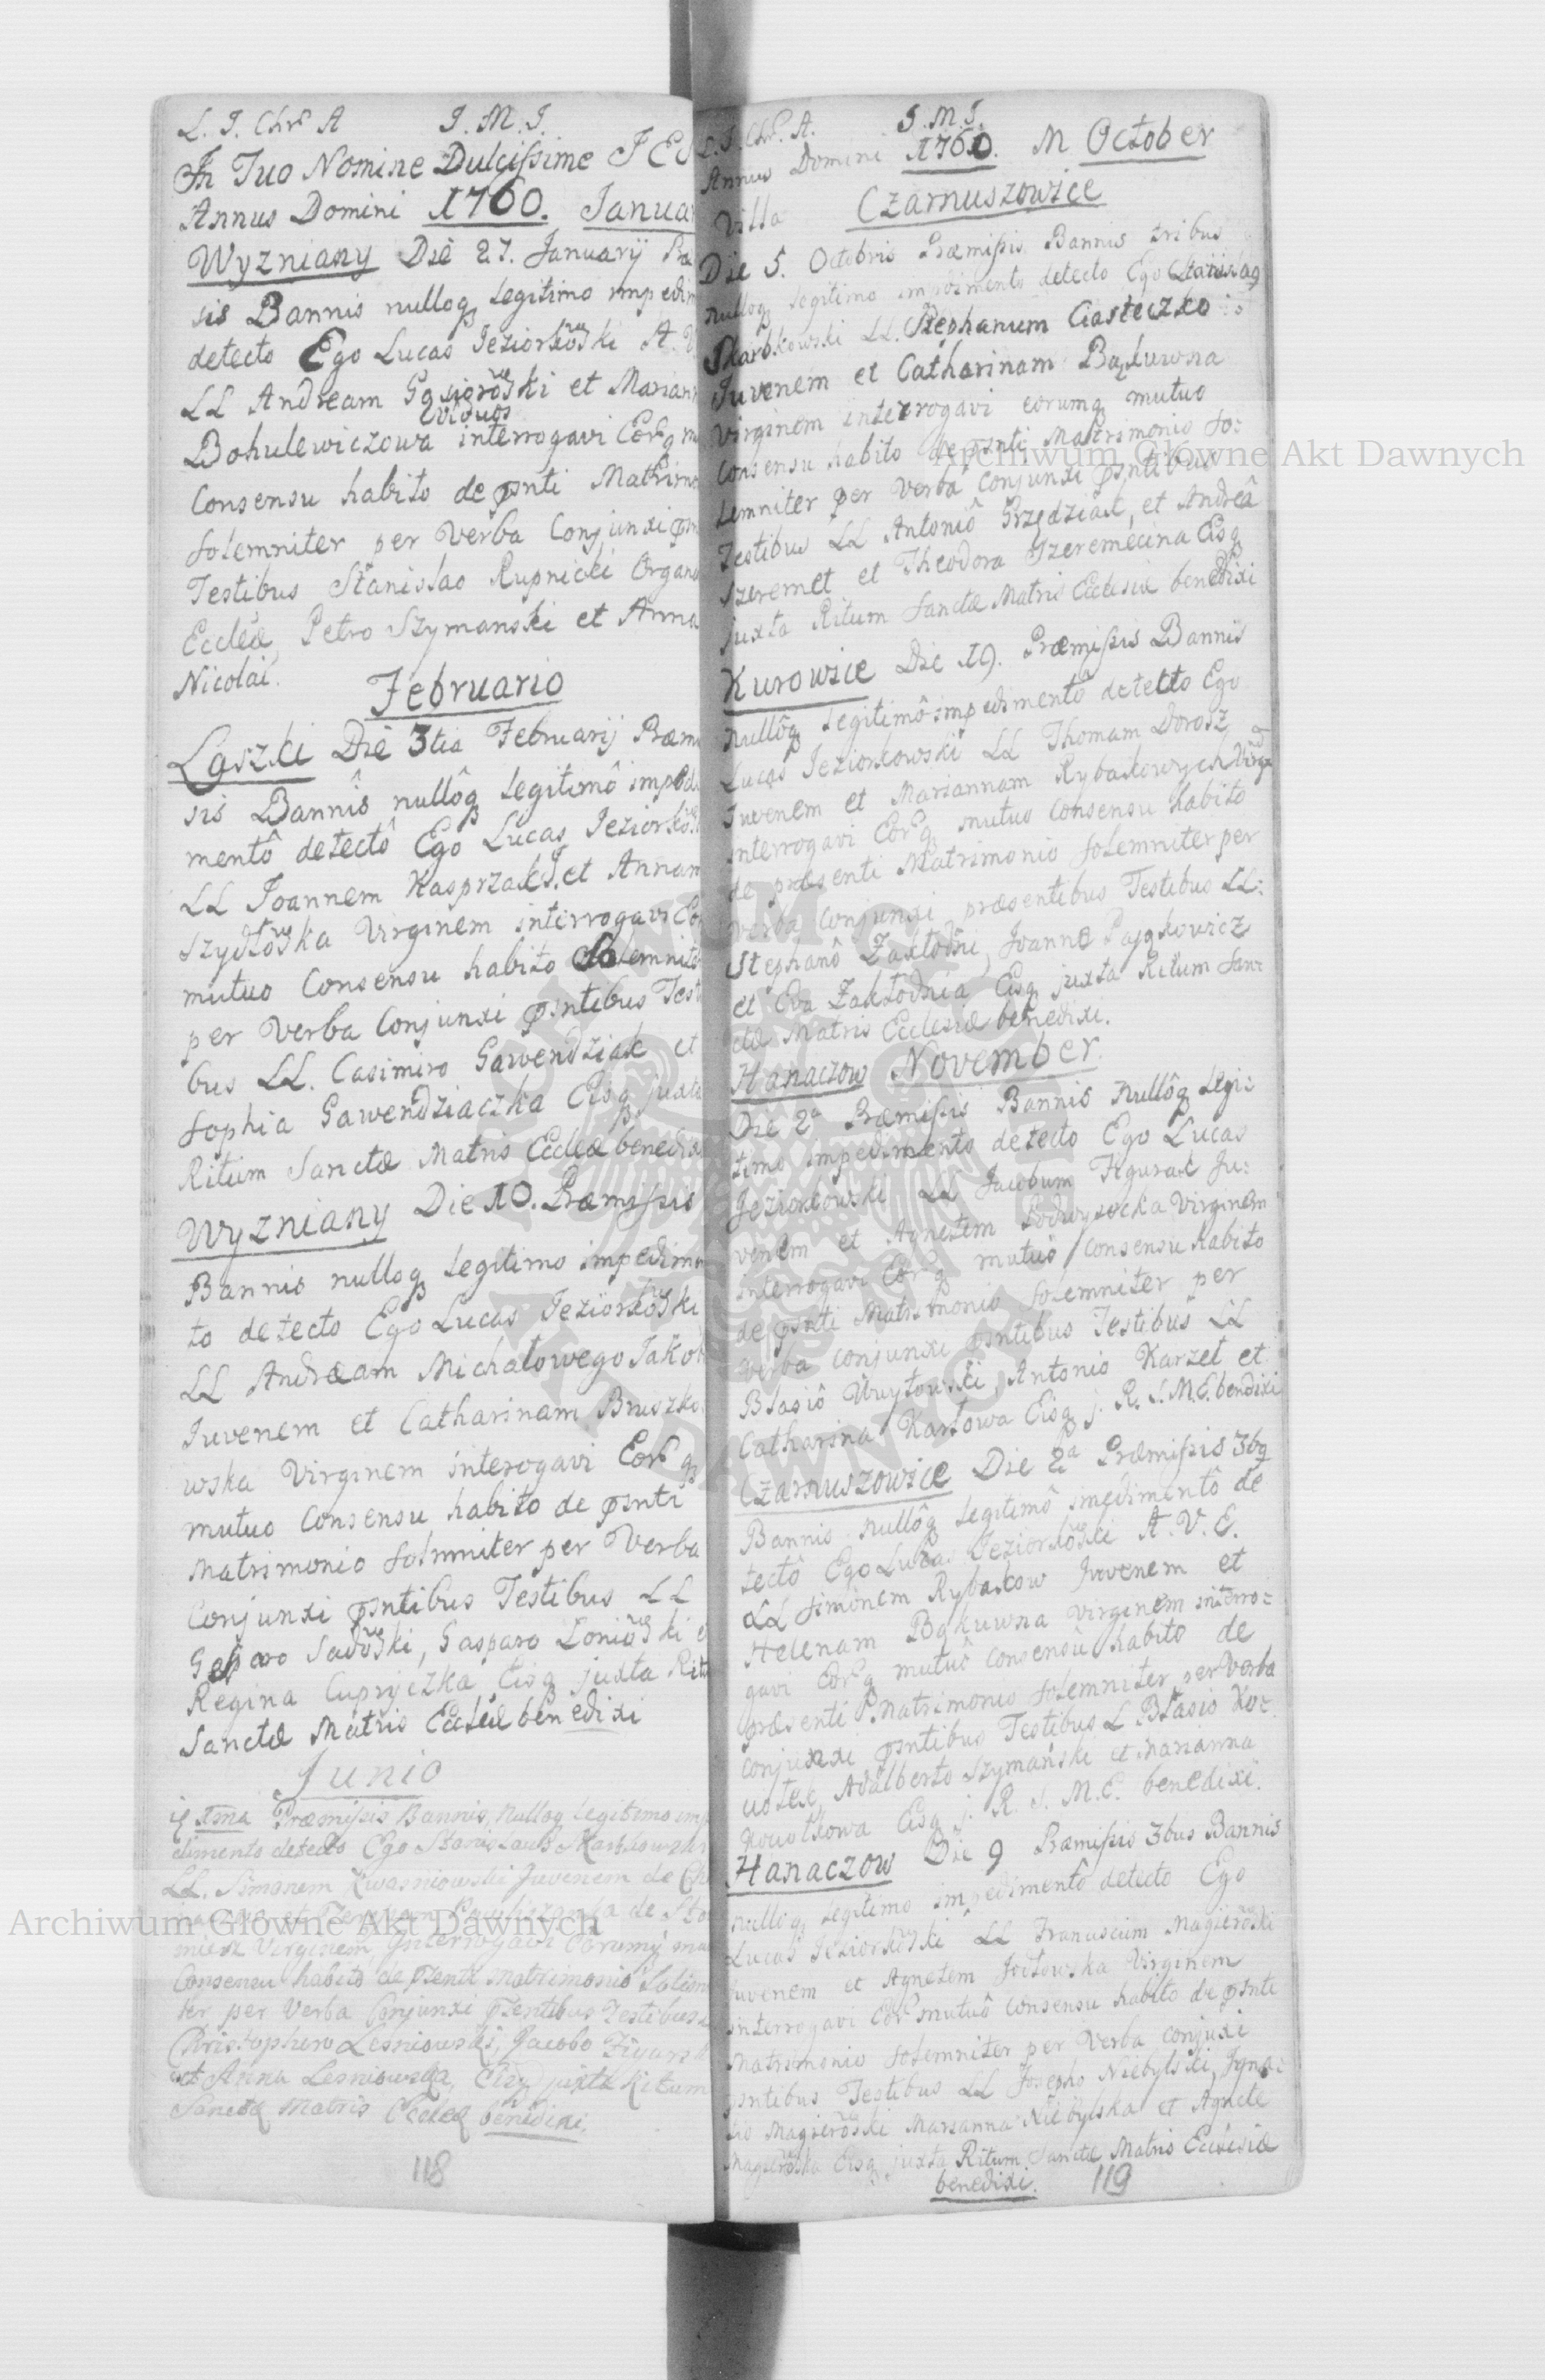 L. J. Chrs A J. M. J.
In Tuo Nomine Dulcissime JES
Annus Domini 1760. Janua
Wyzniany Die 27. Januarij Præ
sis Bannis nulloq legitimo impedim
detecto Ego Lucas Jeziorkowski A. V.
LL Andream Gąsiorowski et Mariann
viduos
Bohulewiczowa interrogavi Eorq m
Consensu habito de psnti Matrimo
solemniter per Verba Conjunxi psn
Testibus Stanislao Rupnicki Organ
Eccleæ, Petro Szymanski et Anna
Nicolai.
Februario
Laszki Die 3tia Februarij Præm
sis Bannis nullôq legitimô impedi
mentô detectô Ego Lucas Jeziorkow
LL Joannem Kasprzak J. et Annam
Szydłowska Virginem interrogavi Eo
mutuo Consensu habito Solemnite
per Verba Conjunxi psntibus Testi
bus LL. Casimiro Gawendziak et
Sophia Gawendziaczka Eisq juxta
Ritum Sanctæ Matris Eccleæ benedixi
Wyzniany Die 10. Præmissis
Bannis nulloq legitimo impedimen
to detecto Ego Lucas Jeziorkowski
LL Andræam Michałowego Jakob
Juvenem et Catharinam Bruszko
wska Virginem interogavi Eorq
mutuo Consensu habito de psnti
Matrimonio solmniter per Verba
Conjunxi psntibus Testibus LL
Gasparo Sadowski, Gasparo Łoniowski e
Regina Cupryczka, Eisq juxta Rit
Sanctæ Matris Eccleæ benedixi
Junio
Præmissis Bannis, nulloq legitimo imp
dimento detecto Ego Stanislaus Skarbkowski
LL. Simonem Kwasniowski Juvenem de
et de
Virginem, Interrogavi Eorumq mu
Consensu habito de psenti Matrimonio Solem
ter per Verba Conjunxi psentibus Testibus
Christophoro Lesniowski, Jacobo Figura
et Anna Lesniowska, Eisq juxta Ritum
Sanctæ Matris Eccleæ benedixi.
118
L. J. Chr. A. J. M. J.
Annus Domini 1760. M October
Villa Czarnuszowice
Die 5. Octobris Præmissis Bannis tribus
nulloq legitimo impedimento detecto Ego Stanislaq
Skarbkowski LL. Stephanum Ciasteczko
Juvenem et Catharinam Bąkuwna
Virginem interrogavi eorumq mutuo
Consensu habito de psnti Matrimonio So:
lemniter per Verba Conjunxi psntibus
Testibus LL Antoniô Grzędziak, et Andreâ
Szeremet et Theodora Szeremecina Eisq
juxta Ritum Sanctæ Matris Ecclesiæ benedixi
Kurowice Die 19. Præmissis Bannis
nullôq legitimô impedimentô detecto Ego
Lucas Jeziorkowski LL Thomam Dorosz
Juvenem et Mariannam Rybakowych Virg
interrogavi Eorq mutuo Consensu habito
de præsenti Matrimonio solemniter per
Verba Conjunxi præsentibus Testibus LL:
Stephanô Zakłodni, Joanne Pająkowicz
et Eva Zakłodnia Eisq juxta Ritum San:
ctæ Matris Ecclesiæ benedixi.
Hanaczow November.
Die 2a Præmissis Bannis nullôq legi:
timo impedimento detecto Ego Lucas
Jeziorkowski LL Jacobum Figurak Ju:
venem et Agnetem Podwysocka Virginem
interrogavi Eorq mutuô Consensu habito
de psnti Matrimonio solemniter per
Verba Conjunxi psntibus Testibus LL
Blasiô Wuytowski, Antonio Karzet et
Catharina Karłowa Eisq j. R. S. M. E. bendixi
Czarnuszowice Die 2a Præmissis 3bq
Bannis nullôq legitimô imedimentô de
tectô Ego Lucas Jeziorkowski A. V. E.
LL Simonem Rybakow Juvenem et
Helenam Bąkuwna Virginem interro:
gavi Eorq mutuô Consensû habito de
præsenti Matrimonio solemniter per Verba
Conjunxi psntibus Testibus L Blasio Ko:
Adalberto Szymański et Marianna
Eisq j. R. S. M. E. benedixi.
Hanaczow Die 9 Præmissis 3bus Bannis
nulloq legitimo impedimentô detecto Ego
Lucas Jeziorkowski LL Franciscum Magierowski
Juvenem et Agnetem Joitowska Virginem
interrogavi Eor mutuô Consensu habito de psnti
Matrimonio solemniter per Verba conjuxi
psntibus Testibus LL Josepho Niebylski, Igna:
tio Magierowski Marianna Niebylska et Agnete
Magierowska Eisq juxta Ritum Sanctæ Matris Ecclesiæ
benedixi. 119
Archiwum Główne Akt Dawnych
Archiwum Główne Akt Dawnych
ARCHIWUM GŁÓWNE
AKT DAWNYCH